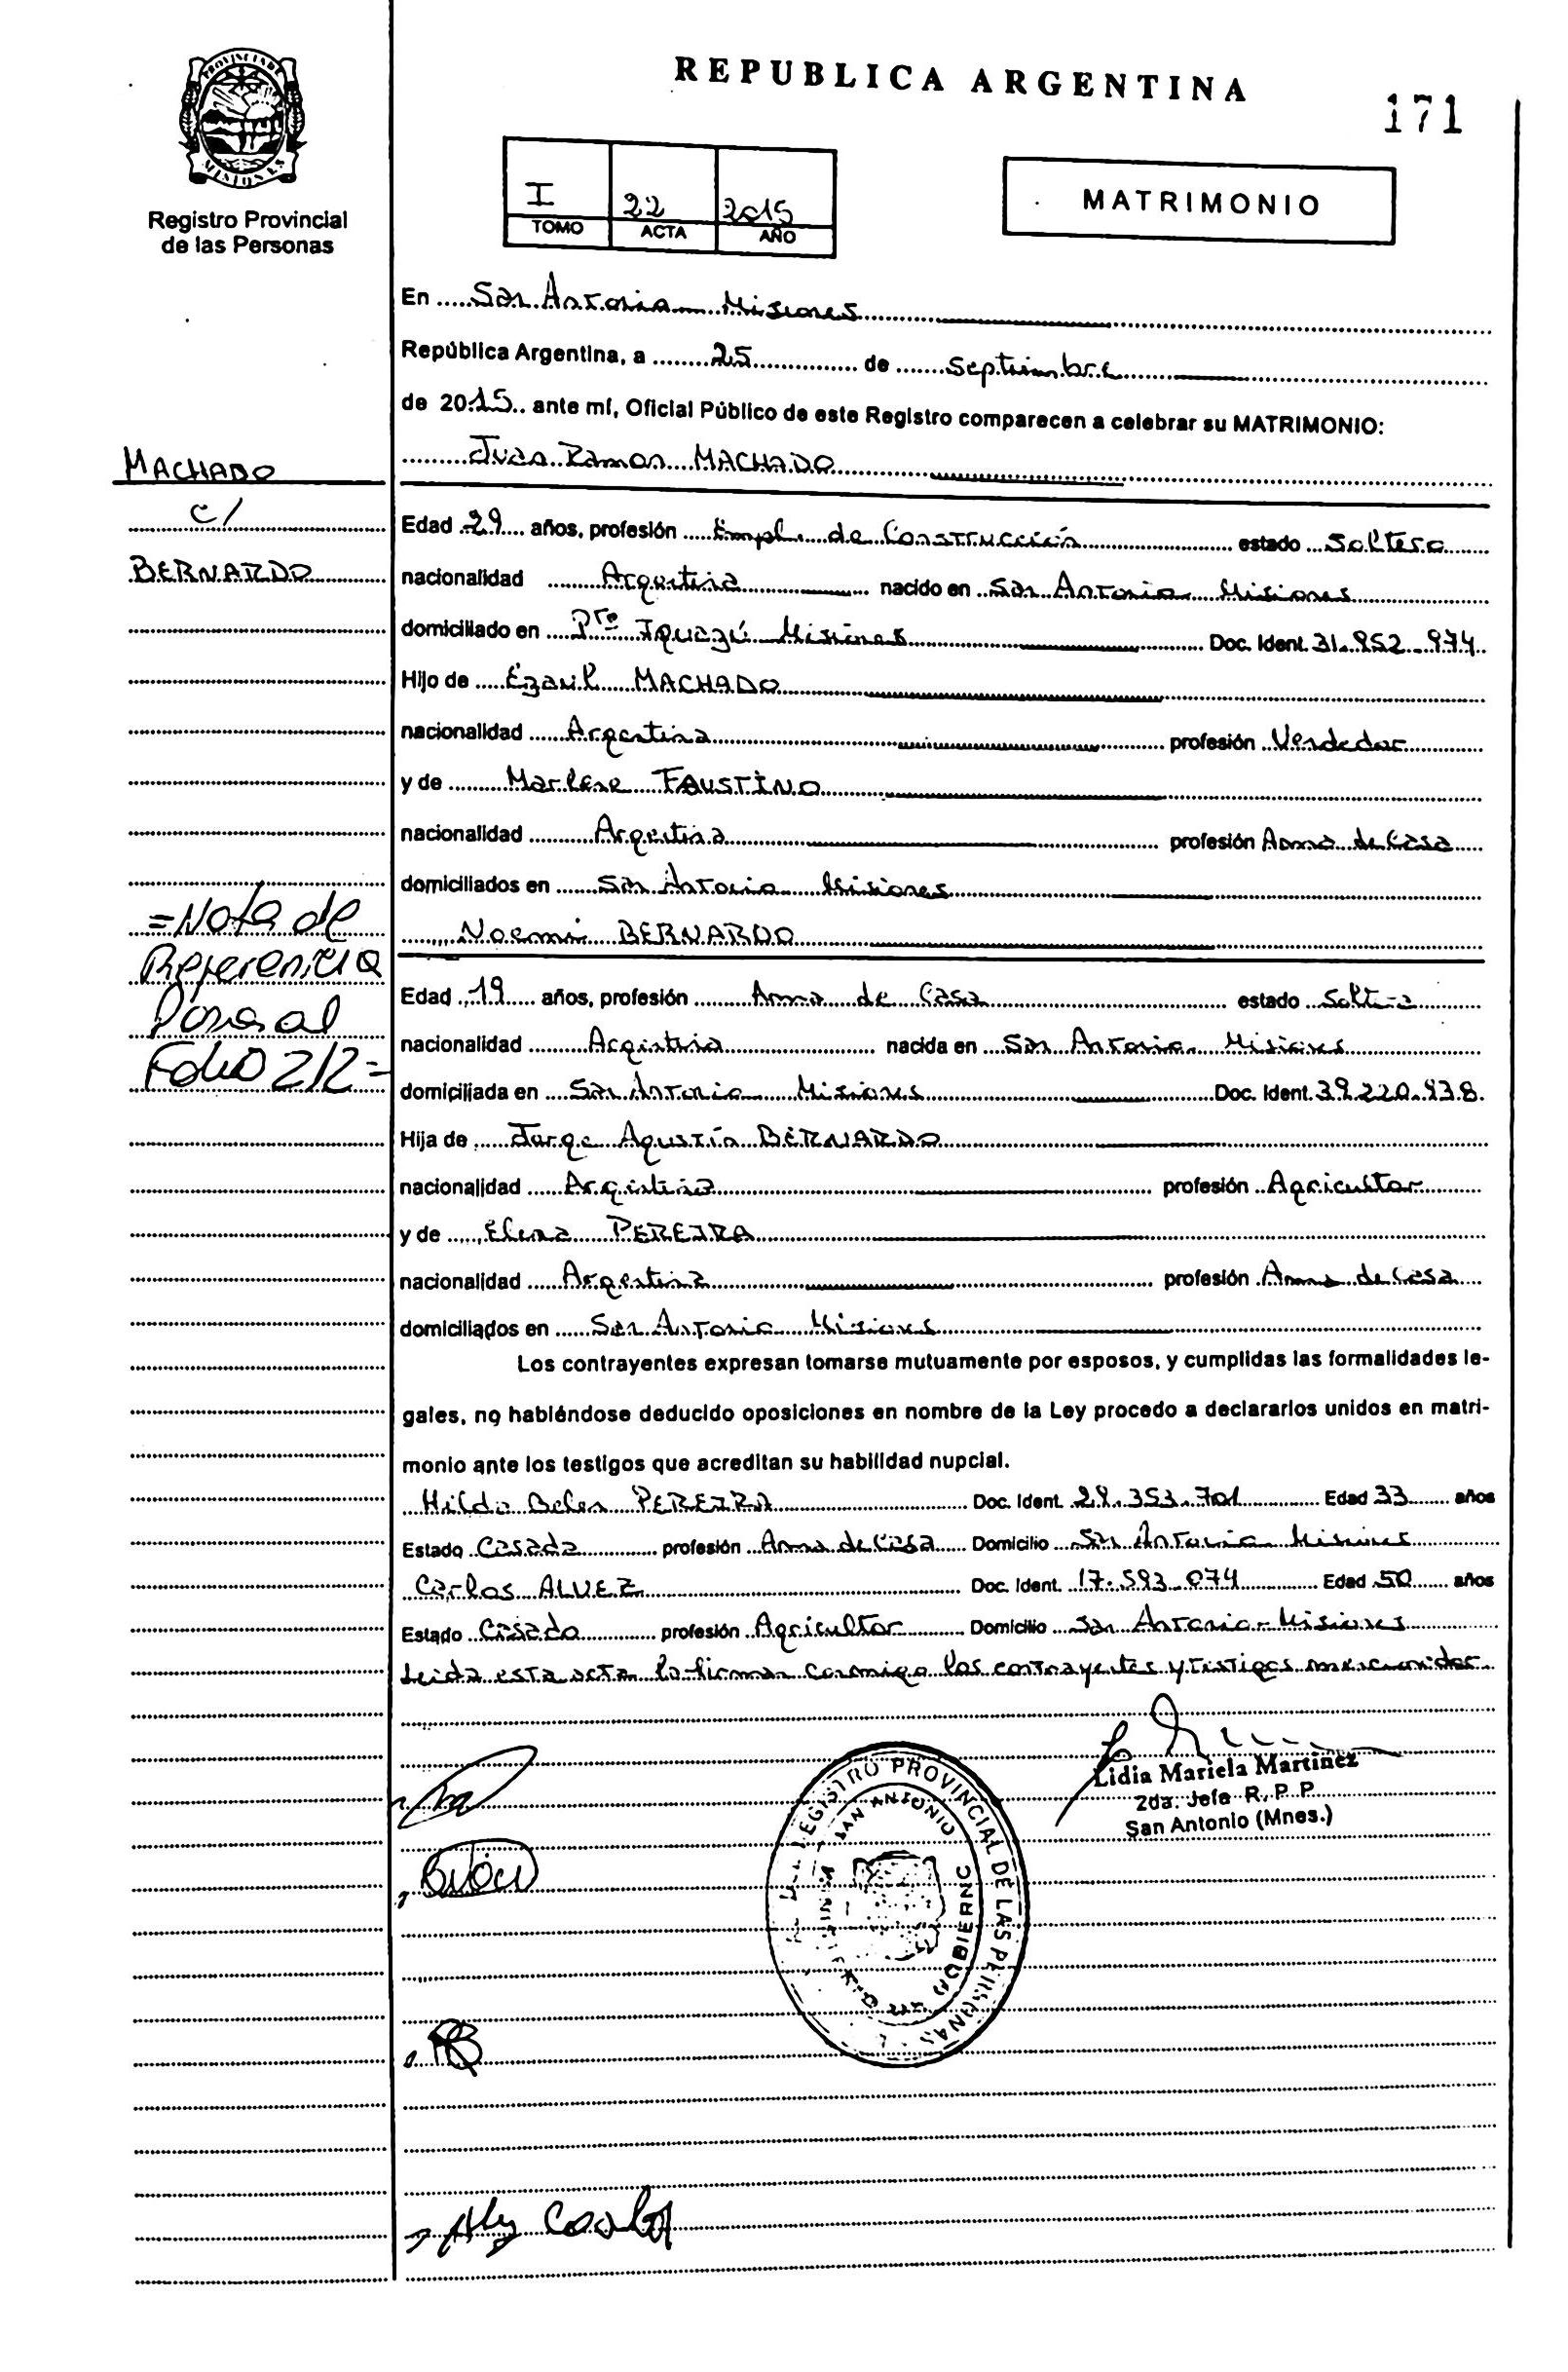 PROVINCIA DE
MISIONES
Registro Provincial
de las Personas
REPUBLICA ARGENTINA
171
I 22 2015
TOMO ACTA AÑO
MATRIMONIO
En San Antonio Misiones
República Argentina, a 25 de septiembre
de 2015 ante mí, Oficial Público de este Registro comparecen a celebrar su MATRIMONIO:
Juan Ramon MACHADO
MACHADO
c/
BERNARDO
Edad 29 años, profesión Empl. de Construcción estado Soltero
nacionalidad Argentina nacido en San Antonio Misiones
domiciliado en Pto Iguazú Misiones Doc. Ident. 31.952.974
Hijo de Ezaul MACHADO
nacionalidad Argentina profesión Vendedor
y de Marlene FAUSTINO
nacionalidad Argentina profesión Ama de Casa
domiciliados en San Antonio Misiones
Noemi BERNARDO
=Nota de
Referencia
Pasa al
Folio 212=
Edad 19 años, profesión Ama de Casa estado Soltera
nacionalidad Argentina nacida en San Antonio Misiones
domiciliada en San Antonio Misiones Doc. Ident. 39.220.938
Hija de Jorge Agustín BERNARDO
nacionalidad Argentina profesión Agricultor
y de Elena PEREIRA
nacionalidad Argentina profesión Ama de Casa
domiciliados en San Antonio Misiones
Los contrayentes expresan tomarse mutuamente por esposos, y cumplidas las formalidades le-
gales, no habiéndose deducido oposiciones en nombre de la Ley procedo a declararlos unidos en matri-
monio ante los testigos que acreditan su habilidad nupcial.
Hilda Belen PEREIRA Doc. Ident. 29.353.701 Edad 33 años
Estado Casada profesión Ama de Casa Domicilio San Antonio Misiones
Carlos ALVEZ Doc. Ident. 17.593.074 Edad 50 años
Estado Casado profesión Agricultor Domicilio San Antonio-Misiones
Leida esta acta la firman conmigo los contrayentes y testigos mencionados
Lidia Mariela Martinez
2da. Jefe R. P. P.
San Antonio (Mnes.)
REGISTRO PROVINCIAL DE LAS PERSONAS
SAN ANTONIO
GOBIERNO